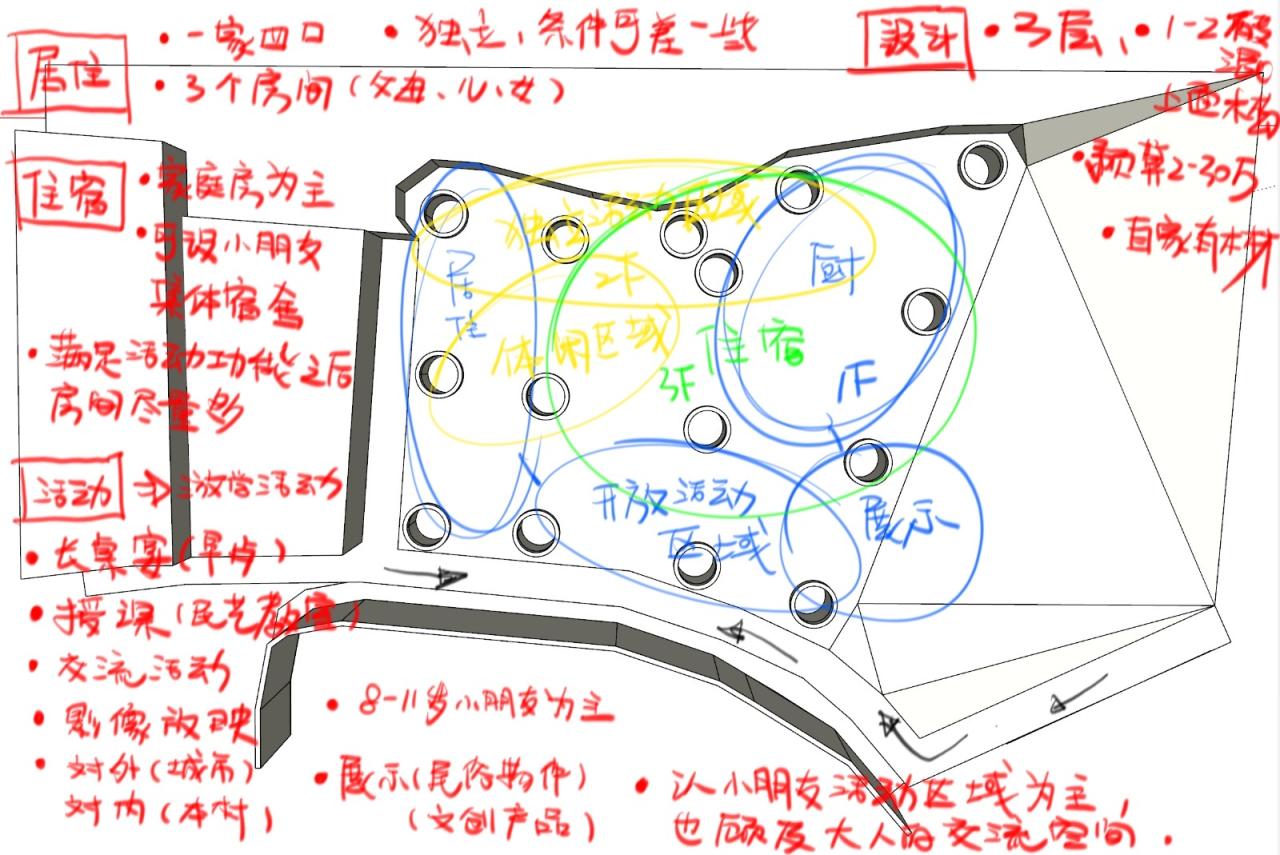 居住
• 一家四口
• 独立,条件可差一些
• 3个房间(父母、儿、女)
设计
• 3层、
• 1-2砖混
上面木构
• 预算2-30万
• 自家有木材
住宿
• 家庭房为主
• 可设小朋友
集体宿舍
• 满足活动功能之后
房间尽量多
活动 → 游学活动
• 长桌宴(早点)
• 授课(民艺教室)
• 交流活动
• 影像放映
• 对外(城市)
对内(本村)
• 8-11岁小朋友为主
• 展示(民俗物件)
(文创产品)
• 以小朋友活动区域为主,
也顾及大人的交流空间.
独立活动区域
2F
休闲区域
居住
厨
1F
住宿
3F
开放活动
区域
展示